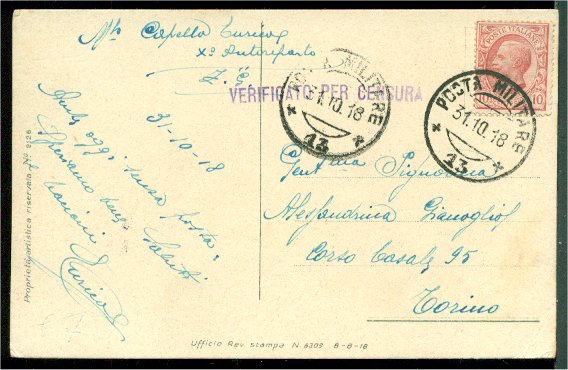 Capello Enrico
Xº Autoreparto
VERIFICATO PER CENSURA
POSTE ITALIANE
10
POSTA MILITARE
31.10.18
13
POSTA MILITARE
31.10.18
13
31-10-18
Anche oggi senza posta,
Speriamo
Saluti
e bacioni
Enrico
Gent.ma Signorina
Alessandrina
Corso Casale 95
Torino
Proprietà artistica riservata Nº 9126
Ufficio Rev. stampa N. 6309 8-8-18